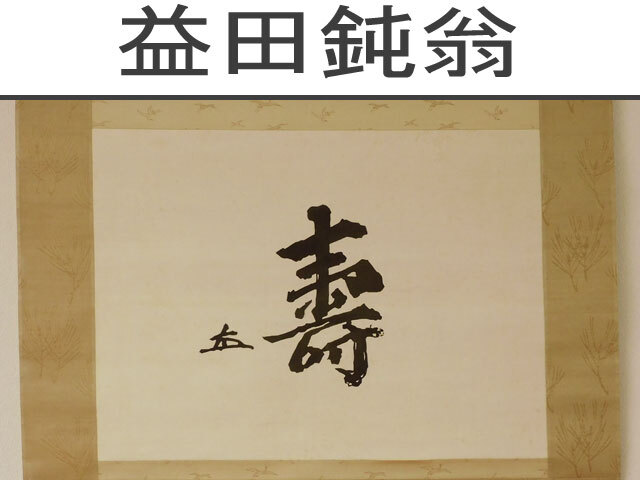 益田鈍翁
壽
益